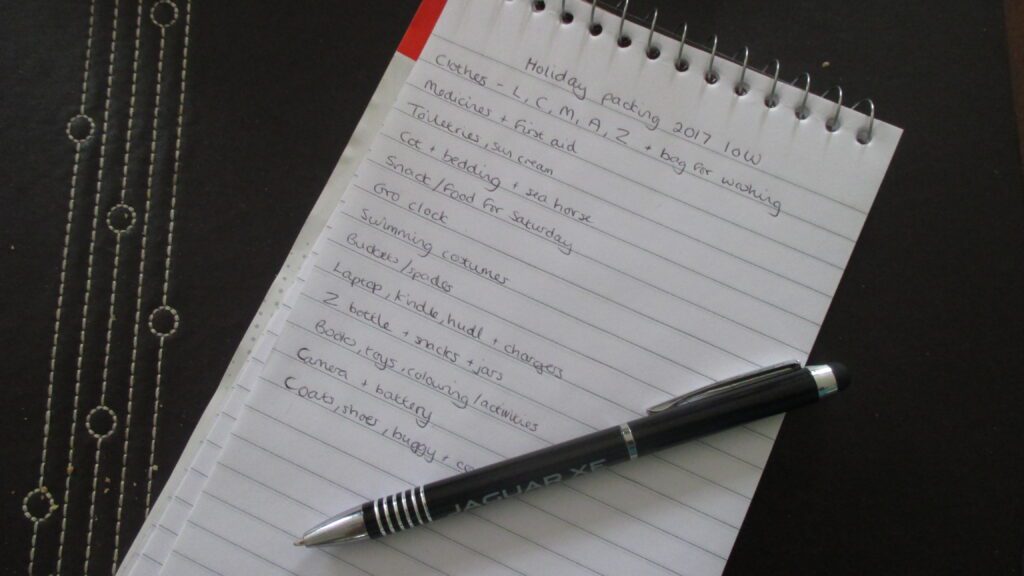 Holiday packing 2017 IOW
Clothes - L, C, M, A, Z + bag for washing
Medicines + First aid
Toiletries, sun cream
Cot + bedding + sea horse
Snack/Food for Saturday
Gro clock
Swimming costumes
Buckets/spades
Laptop, kindle, hudl + chargers
Z bottle + snacks + jars
Books, toys, colouring/activities
Camera + battery
Coats, shoes, buggy +
JAGUAR XF